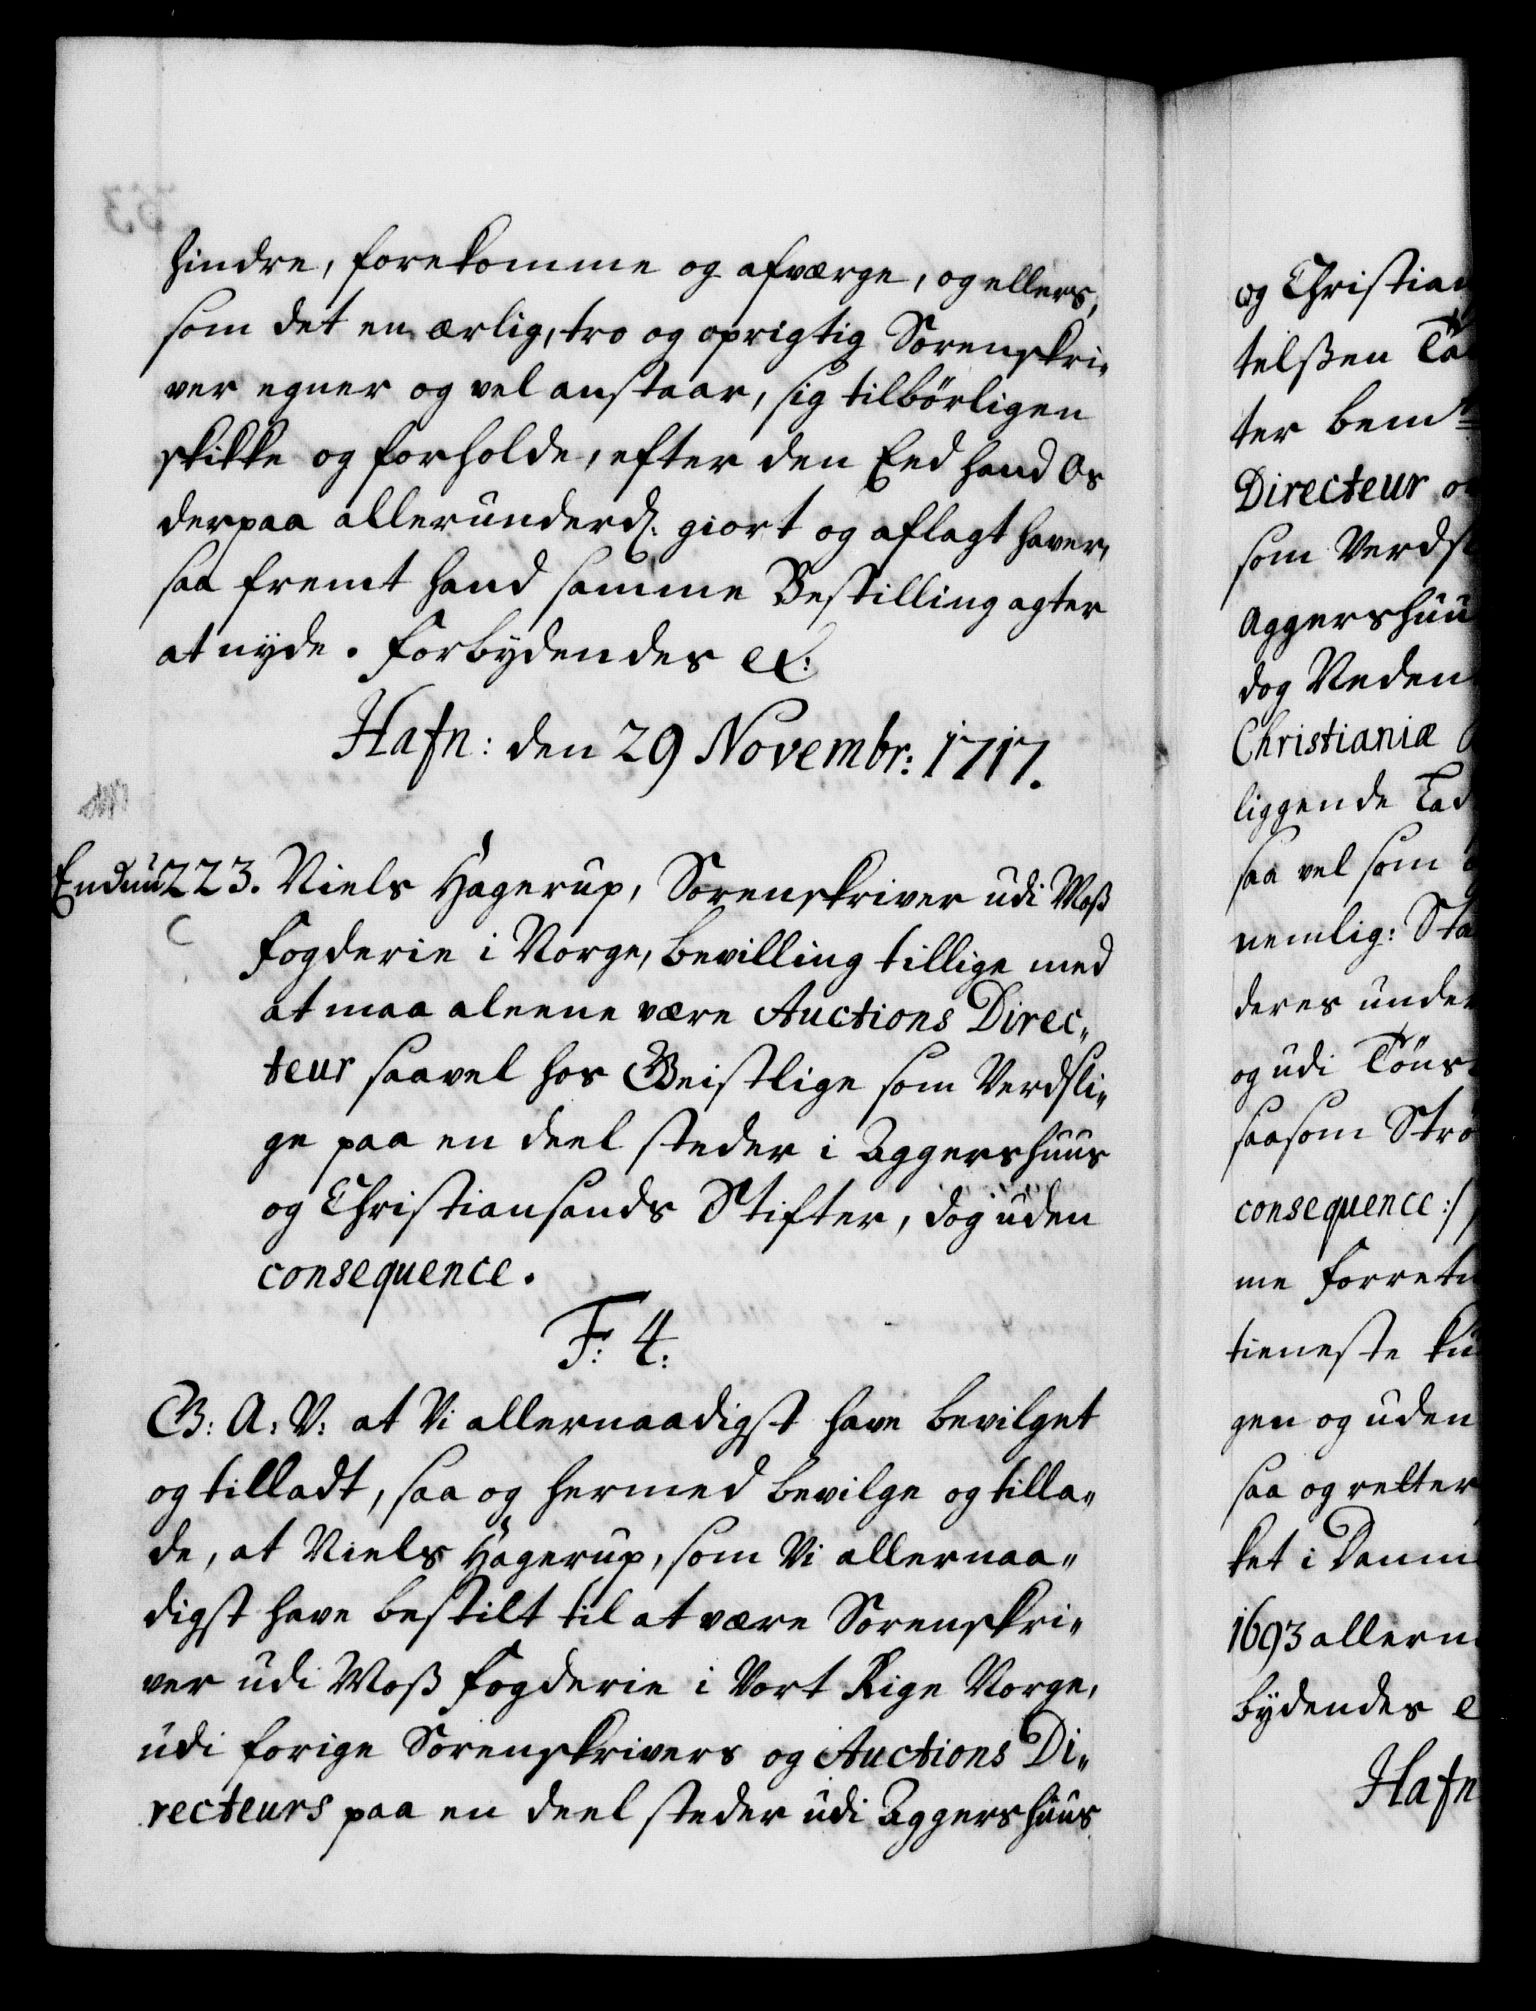 hindre, forekomme og afværge, og ellers,
som det en ærlig, tro og oprigtig Sorenskri-
ver egner og vel anstaar, sig tilbørligen
skikke og forholde, efter den Eed hand Os
derpaa allerunderd. giort og aflagt haver,
saa fremt hand samme Bestilling agter
at nyde. Forbydendes etc:
Hafn: den 29 Novembr: 1717.
Endnu 223. Niels Hagerup, Sorenskriver udi Moss
Fogderie i Norge, bevilling tillige med
at maa aleene være Auctions Direc-
teur saavel hos Geistlige som Verdsli-
ge paa en deel steder i Aggershuus
og Christiansands Stifter, dog uden
consequence.
F: 4:
G: A: V: at Vi allernaadigst have bevilget
og tilladt, saa og hermed bevilge og tilla-
de, at Niels Hagerup, som Vi allernaa-
digst have bestilt til at være Sorenskri-
ver udi Moss Fogderie i Vort Rige Norge,
udi forige Sorenskrivers og Auctions Di-
recteurs paa en deel steder udi Aggershuus
og Christian
telssen
ter bemt
Directeur
som Verdsl
Aggershuu
dog Neden
Christianiæ
liggende Lad
saa vel som
nemlig: Sta
deres under
og udi Tøns
saasom Strø
consequence:/
me Forret
tieneste
gen og uden
saa og retter
ket i Danm
1693 allern
bydendes e
Hafn